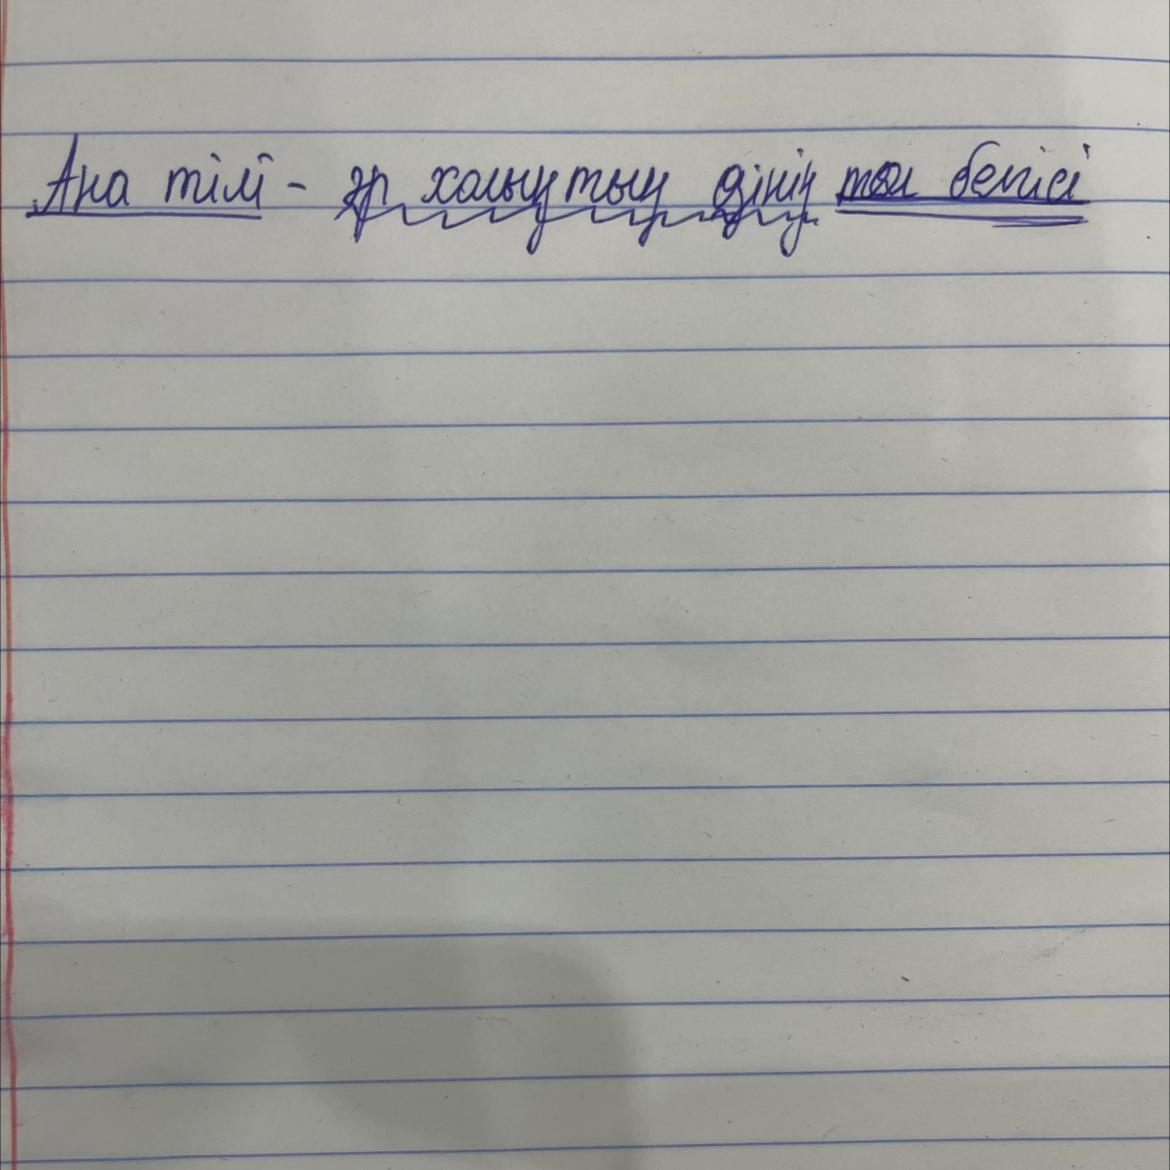 Ана тілі - әр халықтың дінің төл белгісі